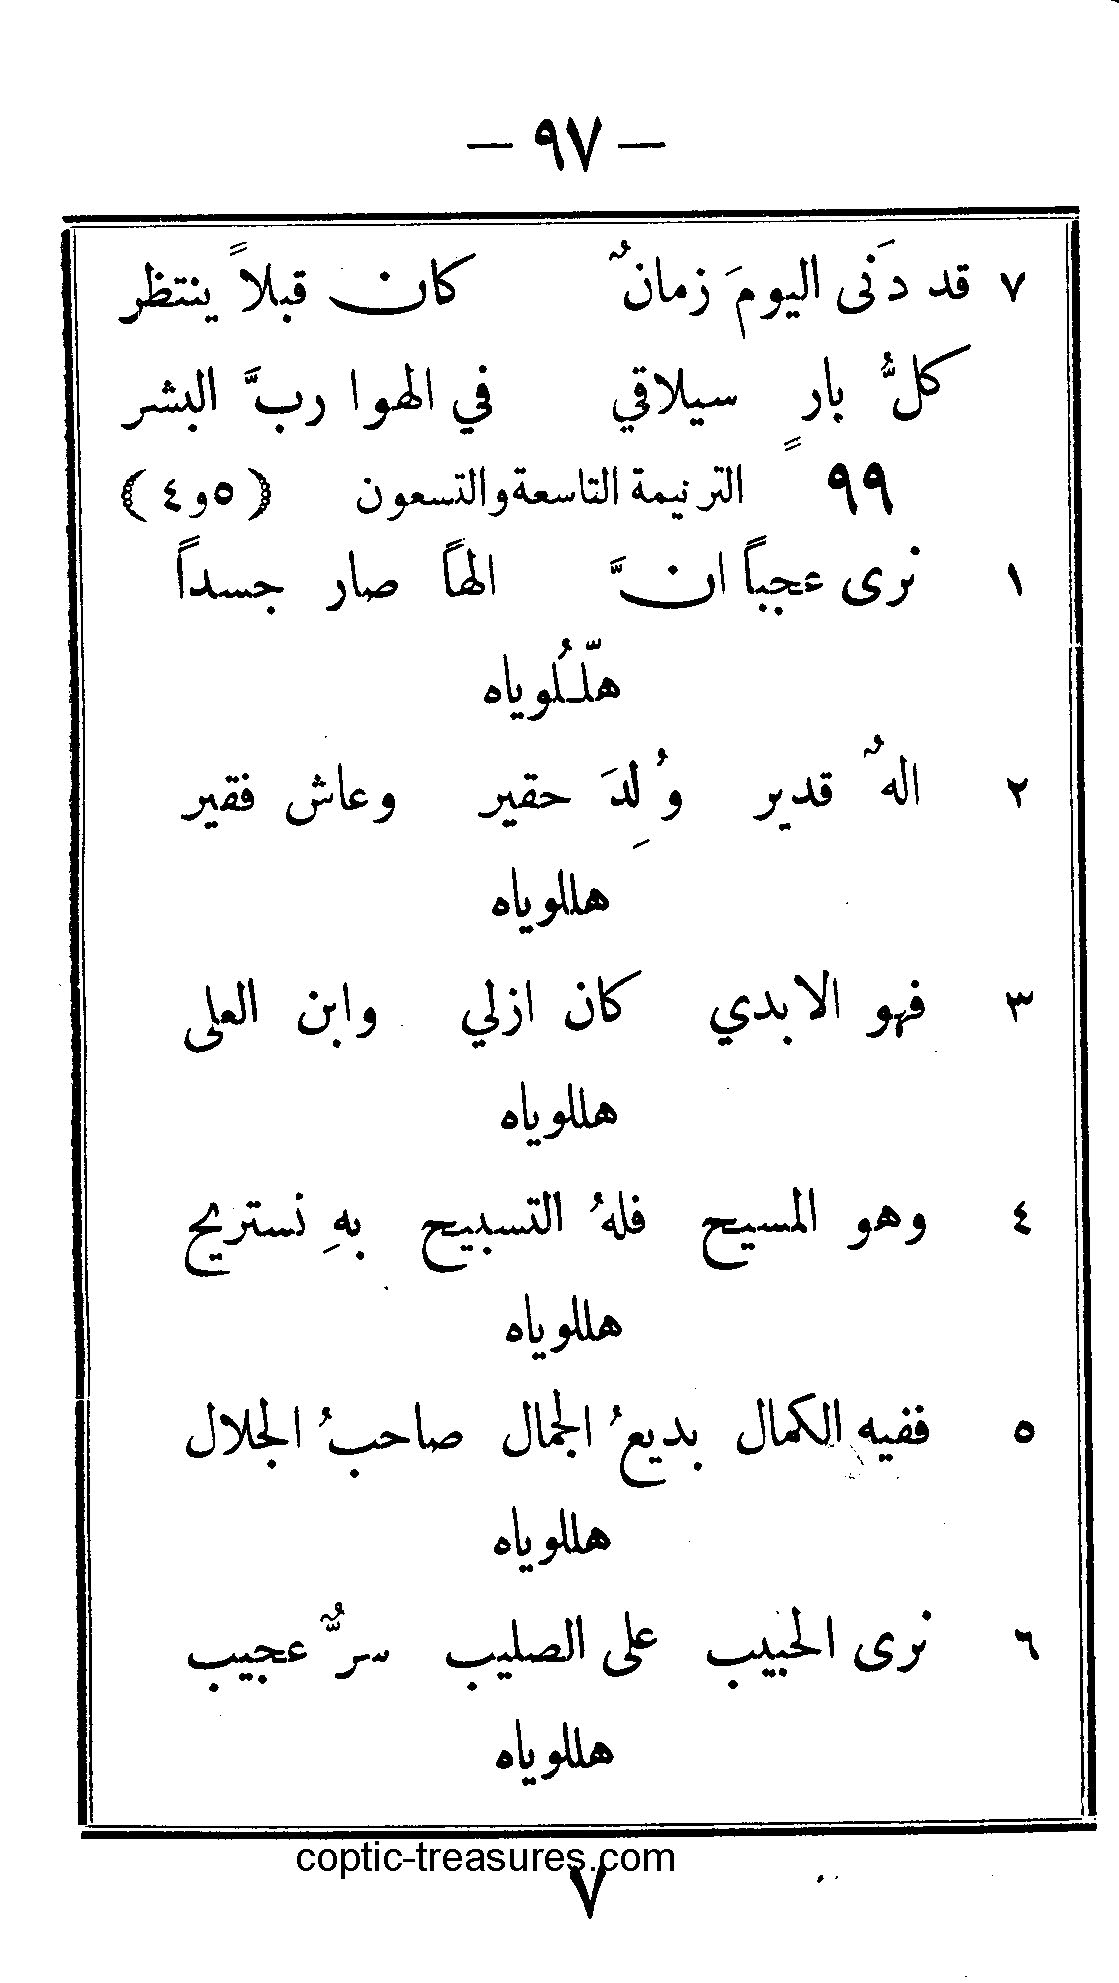 — ٩٧ —
٧ قد دَنى اليومَ زمانٌ كان قبلاً ينتظر
كلُّ بار سيلاقي في الهوا ربَّ البشر
٩٩ً الترنيمة التاسعة والتسعون (٥ و٤)
١ نرى عجباً انَّ الهاً صار جسداً
هلّلُوياه
٢ الهٌ قدير وُلِدَ حقير وعاش فقير
هللوياه
٣ فهو الابدي كان ازلي وابن العلي
هللوياه
٤ وهو المسيح فلهُ التسبيح بهِ نستريح
هللوياه
٥ ففيه الكمال بديعُ الجمال صاحبُ الجلال
هللوياه
٦ نرى الحبيب على الصليب سرٌّ عجيب
هللوياه
coptic-treasures.com
٧